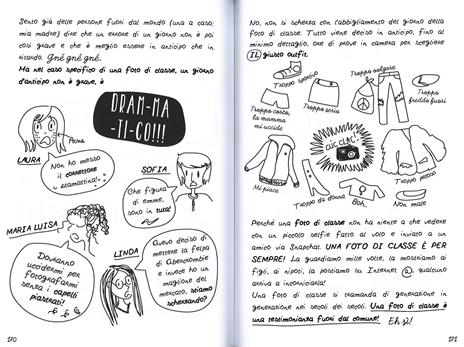 Sento già delle persone fuori dal mondo (una a caso:
mia madre) dire che un errore di un giorno non è poi
così grave e che è meglio essere in anticipo che in
ritardo. Gné gné gné.
Ma nel caso specifico di una foto di classe, un giorno
d'anticipo non è grave, è
DRAM-MA
-TI-CO!!!
Acne
LAURA
Non ho messo
il correttore
stamattina!
SOFIA
Che figura
di emme,
sono in tuta!
MARIA LUISA
Dovranno
uccidermi per
fotografarmi
senza i capelli
piastrati!
LINDA
Avevo deciso di
mettere la felpa
di Abercrombie
e invece ho un
maglione del
mercato, stiamo
scherzando?
170
No, non si scherza con l'abbigliamento del giorno della
foto di classe. Tutto viene deciso in anticipo, fino al
minimo dettaglio, ore di prove in camera per scegliere
IL giusto outfit.
Troppo sportivo
Troppo volgare
Troppo corto,
la mamma
mi uccide
Troppo serio
Troppo
freddo fuori
CLIC CLAC!
Mi piace
Troppo da donna
Boh
Troppo peloso
Non male
Perché una foto di classe non ha niente a che vedere
con un piccolo selfie fatto al volo e inviato a un
amico via Snapchat. UNA FOTO DI CLASSE È PER
SEMPRE! La guardiamo mille volte, la mostriamo ai
figli, ai nipoti, la postiamo su Internet @ qualcuno
arriva a incorniciarla!
Una foto di classe si tramanda di generazione in
generazione nei secoli dei secoli. Una foto di classe è una
testimonianza fuori dal comune! Eh sì!
171